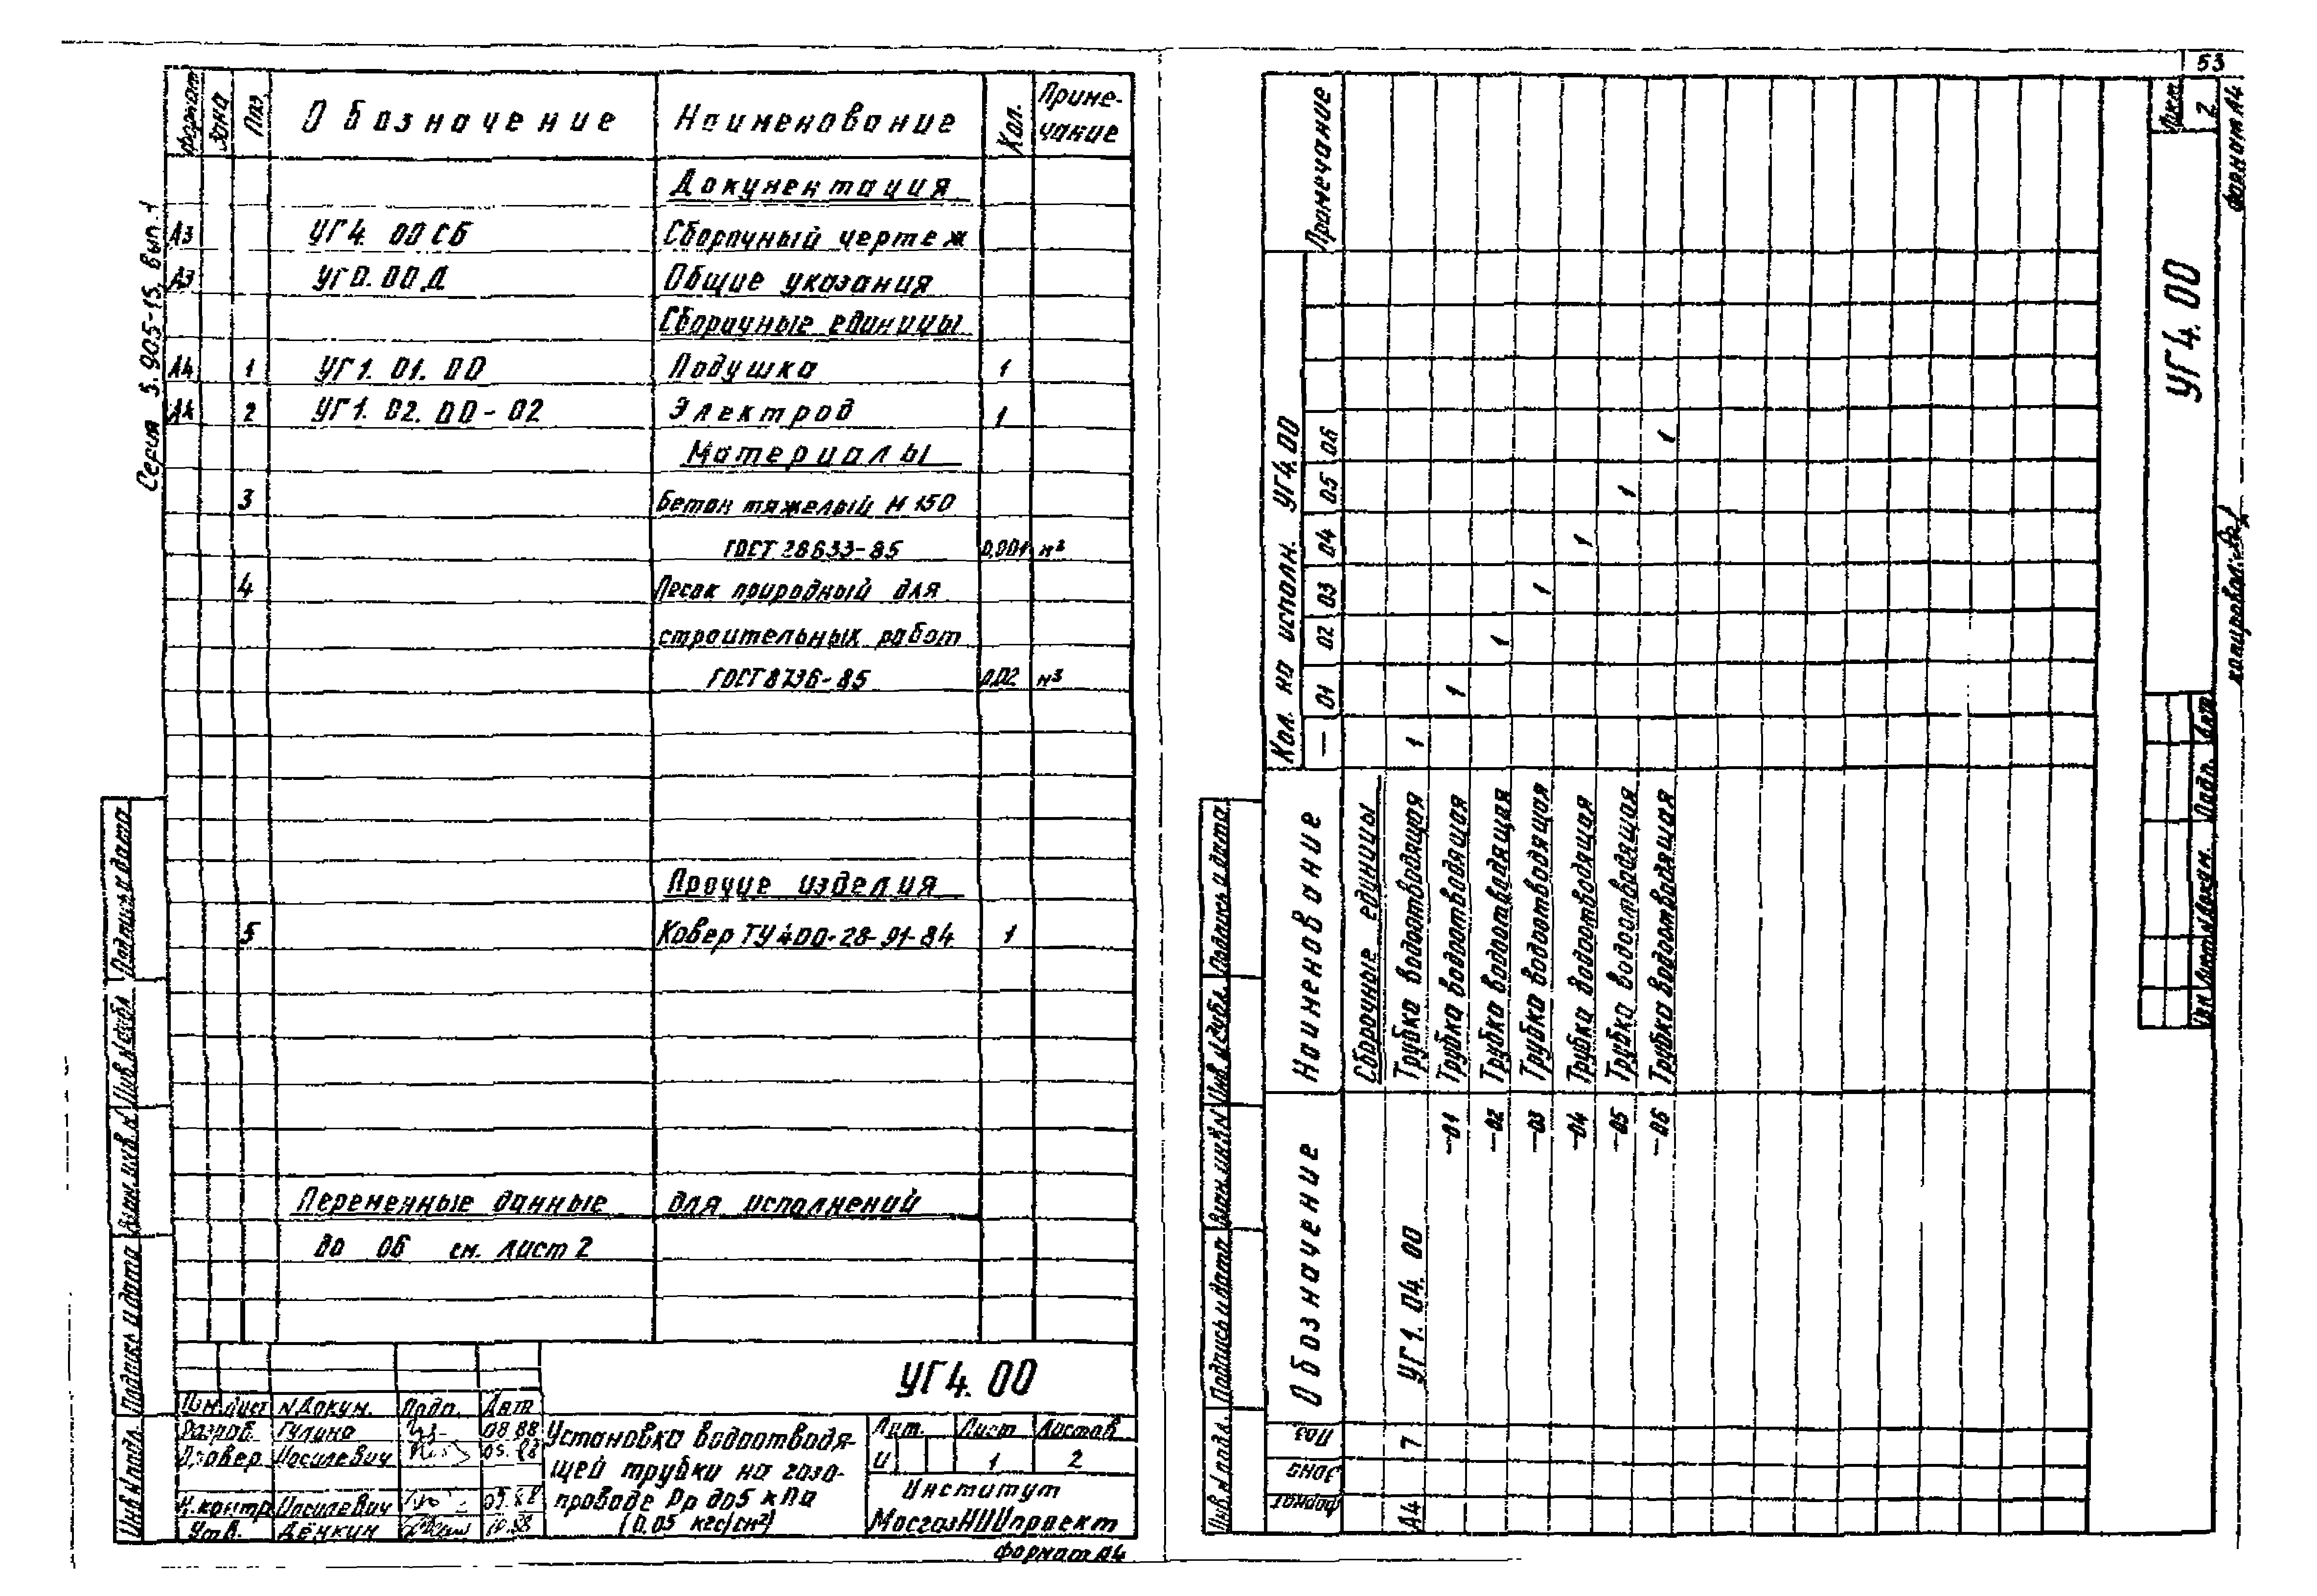 53
Серия 5.905-15, вып.1
Формат Зона Поз. Обозначение Наименование Кол. Приме-
чание
Документация
А3 УГ4. 00 СБ Сборочный чертеж
А3 УГ0. 00 Д Общие указания
Сборочные единицы
А4 1 УГ1. 01. 00 Подушка 1
А4 2 УГ1. 02. 00 - 02 Электрод 1
Материалы
3 Бетон тяжелый М 150
ГОСТ 28633-85 0,001 м³
4 Песок природный для
строительных работ
ГОСТ 8736-85 0,02 м³
Прочие изделия
5 Ковер ТУ 400-28-91-84 1
Переменные данные для исполнений
до 06 см. лист 2
Подпись и дата
Инв. N дубл.
Взам. инв. N
Подпись и дата
Инв. N подл.
УГ4. 00
Изм. Лист N Докум. Подп. Дат
Разраб. Гулина 08.88
Провер. Иосилевич 09.88
Н. контр. Иосилевич 09.88
Утв. Дёнкин 10.88
Установка водоотводя-
щей трубки на газо-
проводе Рр до 5 кПа
(0,05 кгс/см²)
Лит. Лист Листов
И 1 2
Институт
МосгазНИИпроект
формат А4
Формат Зона Поз Обозначение Наименование Кол. на исполн. УГ4.00 Примечание
— 01 02 03 04 05 06
Сборочные единицы
А4 7 УГ1. 04. 00 Трубка водоотводящая 1
-01 Трубка водоотводящая 1
-02 Трубка водоотводящая 1
-03 Трубка водоотводящая 1
-04 Трубка водоотводящая 1
-05 Трубка водоотводящая 1
-06 Трубка водоотводящая 1
Подпись и дата
Инв. N дубл.
Взам. инв. N
Подпись и дата
Инв. N подл.
Изм Лист N Докум. Подп. Дат
УГ4. 00
Лист
2
Копировал:
формат А4